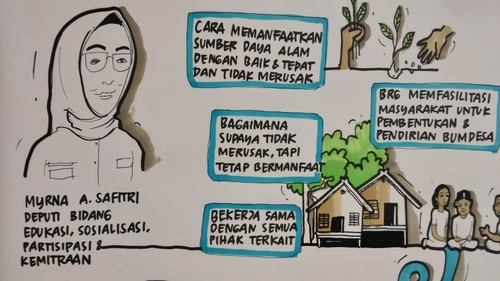 CARA MEMANFAATKAN
SUMBER DAYA ALAM
DENGAN BAIK & TEPAT
DAN TIDAK MERUSAK
BRG MEMFASILITASI
MASYARAKAT UNTUK
PEMBENTUKAN &
PENDIRIAN BUMDESA
BAGAIMANA
SUPAYA TIDAK
MERUSAK, TAPI
TETAP BERMANFAAT
MYRNA A. SAFITRI
DEPUTI BIDANG
EDUKASI, SOSIALISASI,
PARTISIPASI &
KEMITRAAN
BEKERJA SAMA
DENGAN SEMUA
PIHAK TERKAIT